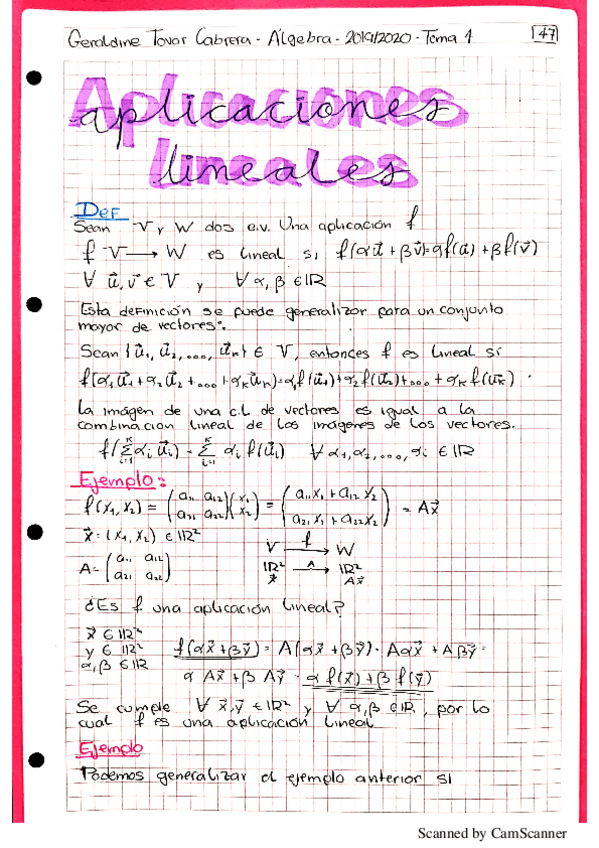 Geraldine Tovar Cabrera - Álgebra - 2019/2020 - Tema 1
47
Aplicaciones
lineales
Def
Sean V y W dos e.v. Una aplicación f
f V → W es lineal si f(αu⃗ + βv⃗) = αf(u⃗) + βf(v⃗)
∀ u⃗, v⃗ ∈ V y ∀ α, β ∈ IR
Esta definición se puede generalizar para un conjunto
mayor de vectores:
Sean {u⃗₁, u⃗₂, ..., u⃗ₙ} ∈ V, entonces f es lineal si
f(α₁u⃗₁ + α₂u⃗₂ + ... + αₖu⃗ₙ) = α₁f(u⃗₁) + α₂f(u⃗₂) + ... + αₖf(u⃗ₖ)
La imágen de una c.l. de vectores es igual a la
combinacion lineal de las imágenes de los vectores.
f(∑ᵢ₌₁ᴷ αᵢ u⃗ᵢ) = ∑ᵢ₌₁ᴷ αᵢ f(u⃗ᵢ) ∀ α₁, α₂, ..., αᵢ ∈ IR
Ejemplo:
f(x₁, x₂) = (a₁₁ a₁₂ / a₂₁ a₂₂)(x₁ / x₂) = (a₁₁x₁ + a₁₂x₂ / a₂₁x₁ + a₂₂x₂) = Ax⃗
x⃗ = (x₁, x₂) ∈ IR²
V → f → W
A = (a₁₁ a₁₂ / a₂₁ a₂₂)
IR² → A → IR²
x⃗ Ax⃗
¿Es f una aplicación lineal?
x⃗ ∈ IR²
y ∈ IR²
α, β ∈ IR
f(αx⃗ + βy⃗) = A(αx⃗ + βy⃗) = Aαx⃗ + Aβy⃗ =
α Ax⃗ + β Ay⃗ = α f(x⃗) + β f(y⃗)
Se cumple ∀ x⃗, y⃗ ∈ IR² y ∀ α, β ∈ IR, por lo
cual f es una aplicación lineal
Ejemplo
Podemos generalizar el ejemplo anterior si
Scanned by CamScanner